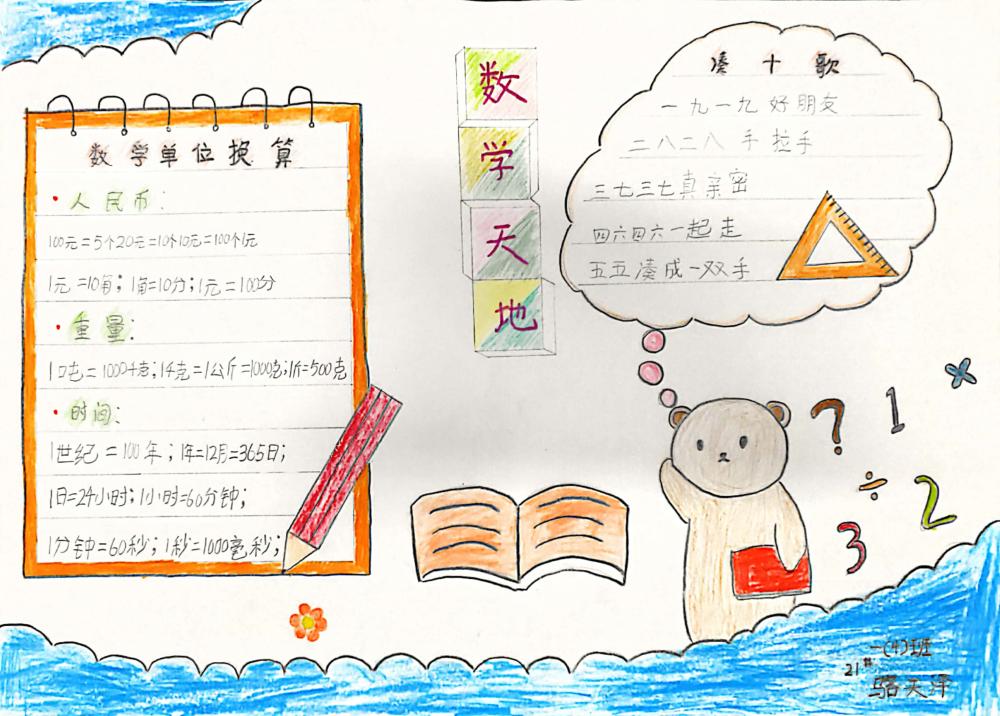 数学天地
数学单位换算
·人民币:
100元=5个20元=10个10元=100个1元
1元=10角;1角=10分;1元=100分
·重量:
1吨=1000千克;1千克=1公斤=1000克;1斤=500克
·时间:
1世纪=100年;1年=12月=365日;
1日=24小时;1小时=60分钟;
1分钟=60秒;1秒=1000毫秒;
凑十歌
一九一九好朋友
二八二八手拉手
三七三七真亲密
四六四六一起走
五五凑成一双手
? 1 ×
÷ 2
3
一(4)班
21#
骆天泽